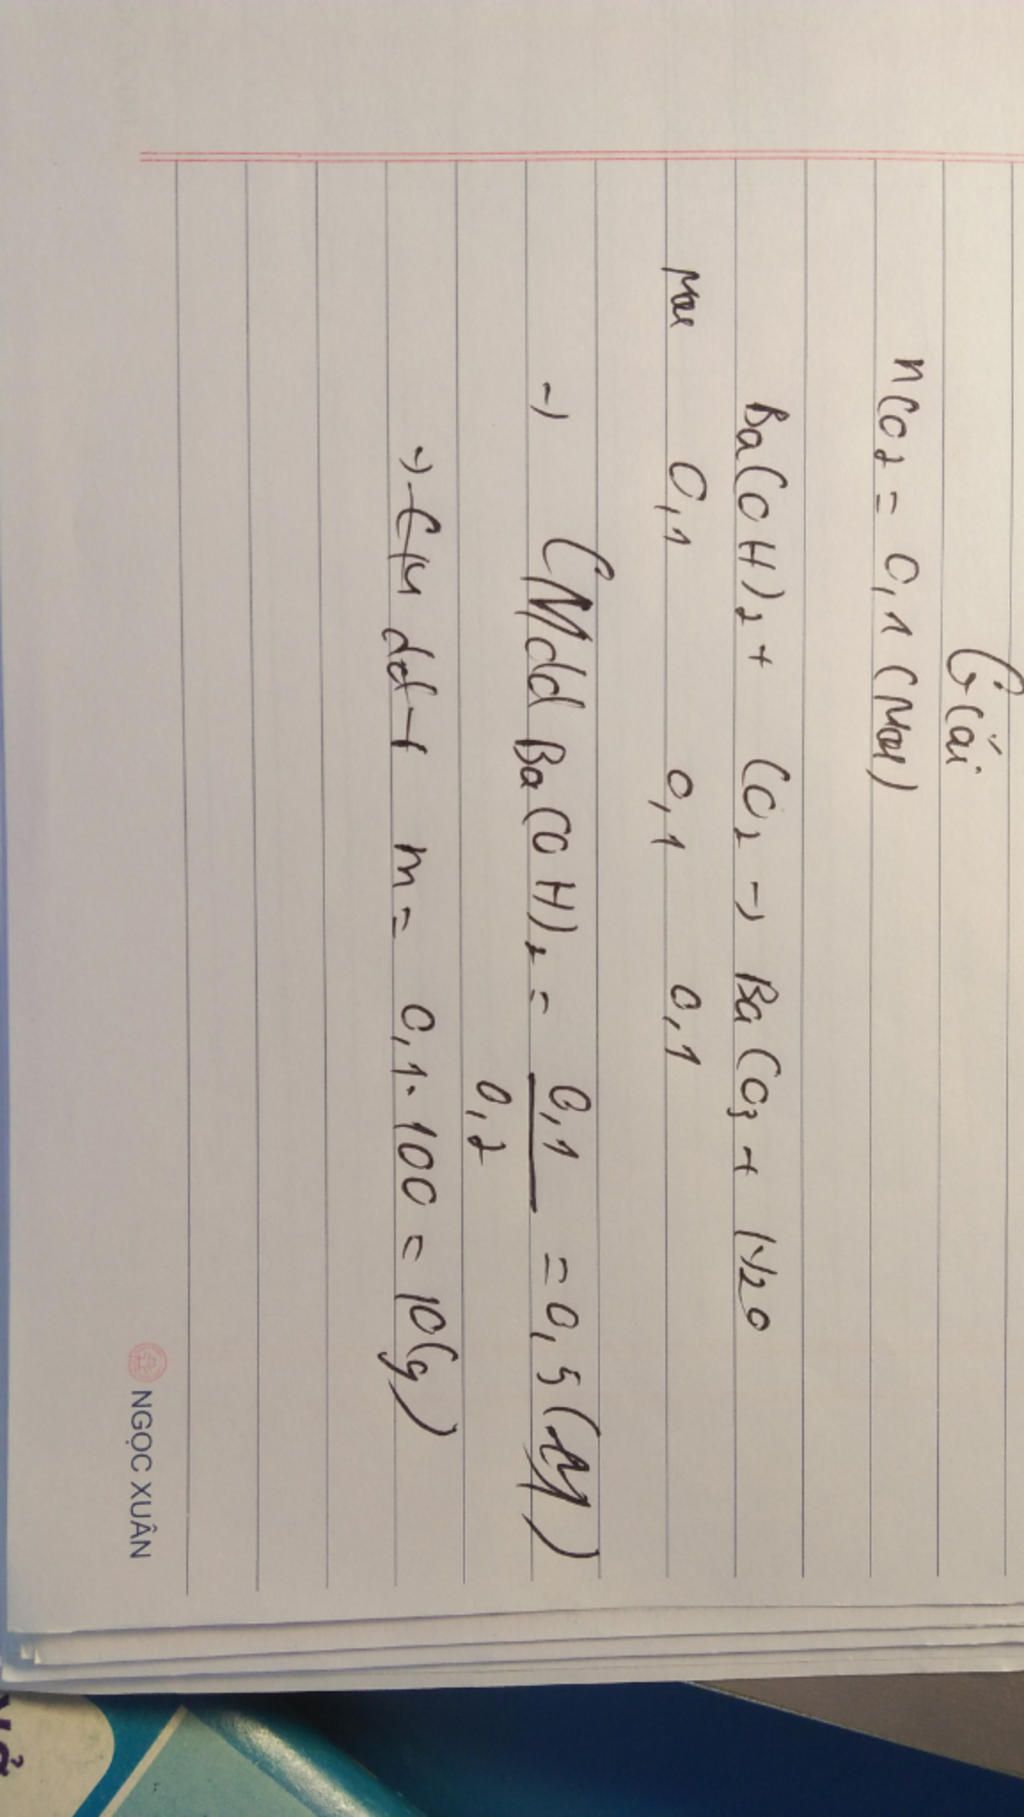 Giải
nCO2 = 0,1 (mol)
Ba(OH)2 + CO2 → BaCO3 + H2O
mol 0,1 0,1 0,1
→ CMdd Ba(OH)2 = 0,1 / 0,2 = 0,5 (M)
→ m = 0,1.100 = 10(g)
NGỌC XUÂN